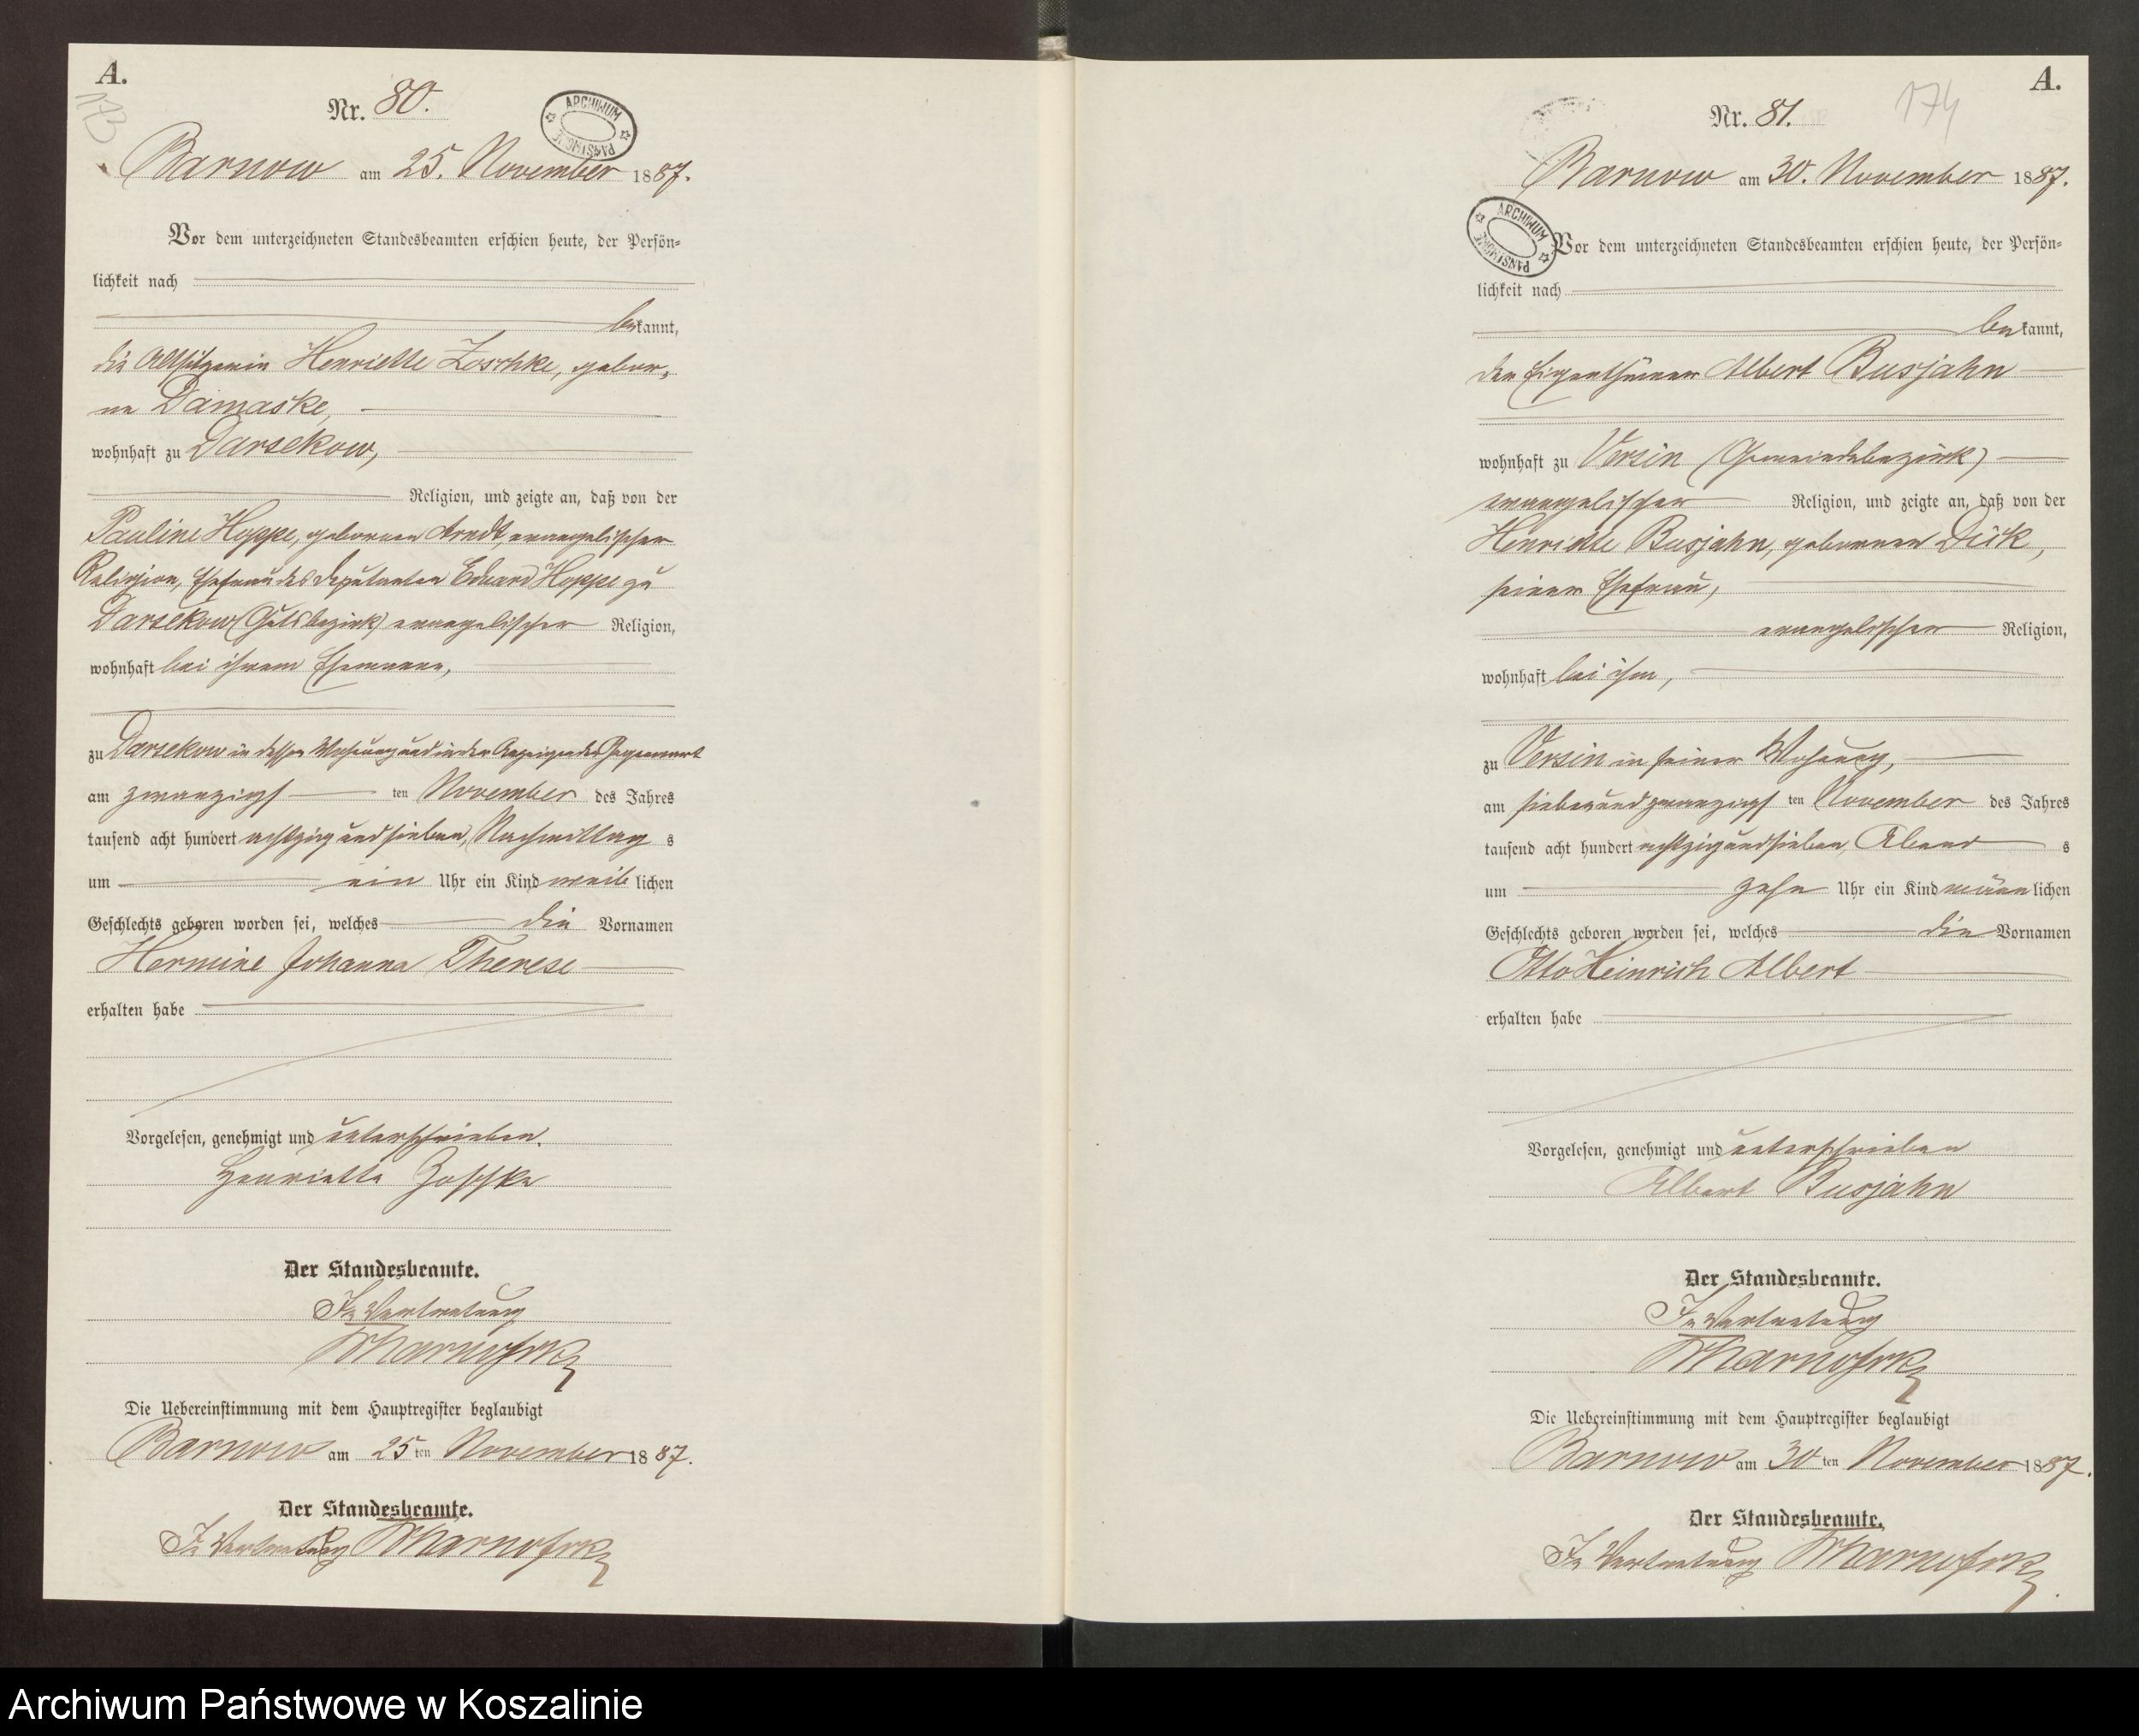 A.
173
Nr. 80.
ARCHIWUM PAŃSTWOWE
Barnow am 25. November 1887.
Vor dem unterzeichneten Standesbeamten erschien heute, der Persön=
lichkeit nach
bekannt,
die Altsitzerin Henriette Zoschke, gebor=
ne Damaske,
wohnhaft zu Darsekow,
Religion, und zeigte an, daß von der
Pauline Hoppe, gebornen Arndt, evangelischer
Religion, Ehefrau des Deputanten Eduard Hoppe zu
Darsekow (Gutsbezirk) evangelischer Religion,
wohnhaft bei ihrem Ehemanne,
zu Darsekow in dessen Wohnung und in der Anzeigenden Gegenwart
am zwanzigs ten November des Jahres
tausend acht hundert achtzig und sieben, Nachmittag s
um ein Uhr ein Kind weib lichen
Geschlechts geboren worden sei, welches die Vornamen
Hermine Johanna Therese
erhalten habe
Vorgelesen, genehmigt und unterschrieben.
Henriette Zoschke
Der Standesbeamte.
In Vertretung
Die Uebereinstimmung mit dem Hauptregister beglaubigt
Barnow am 25 ten November 1887.
Der Standesbeamte.
In Vertretung
A.
174
Nr. 81.
Barnow am 30. November 1887.
ARCHIWUM PAŃSTWOWE
Vor dem unterzeichneten Standesbeamten erschien heute, der Persön=
lichkeit nach
bekannt,
der Eigenthümer Albert Busjahn
wohnhaft zu Versin (Gemeindebezirk)
evangelischer Religion, und zeigte an, daß von der
Henriette Busjahn, gebornen Dück,
seiner Ehefrau,
evangelischer Religion,
wohnhaft bei ihm,
zu Versin in seiner Wohnung,
am siebenundzwanzigs ten November des Jahres
tausend acht hundert achtzig und sieben, Abend s
um zehn Uhr ein Kind männ lichen
Geschlechts geboren worden sei, welches die Vornamen
Otto Heinrich Albert
erhalten habe
Vorgelesen, genehmigt und unterschrieben
Albert Busjahn
Der Standesbeamte.
In Vertretung
Die Uebereinstimmung mit dem Hauptregister beglaubigt
Barnow am 30 ten November 1887.
Der Standesbeamte.
In Vertretung
Archiwum Państwowe w Koszalinie